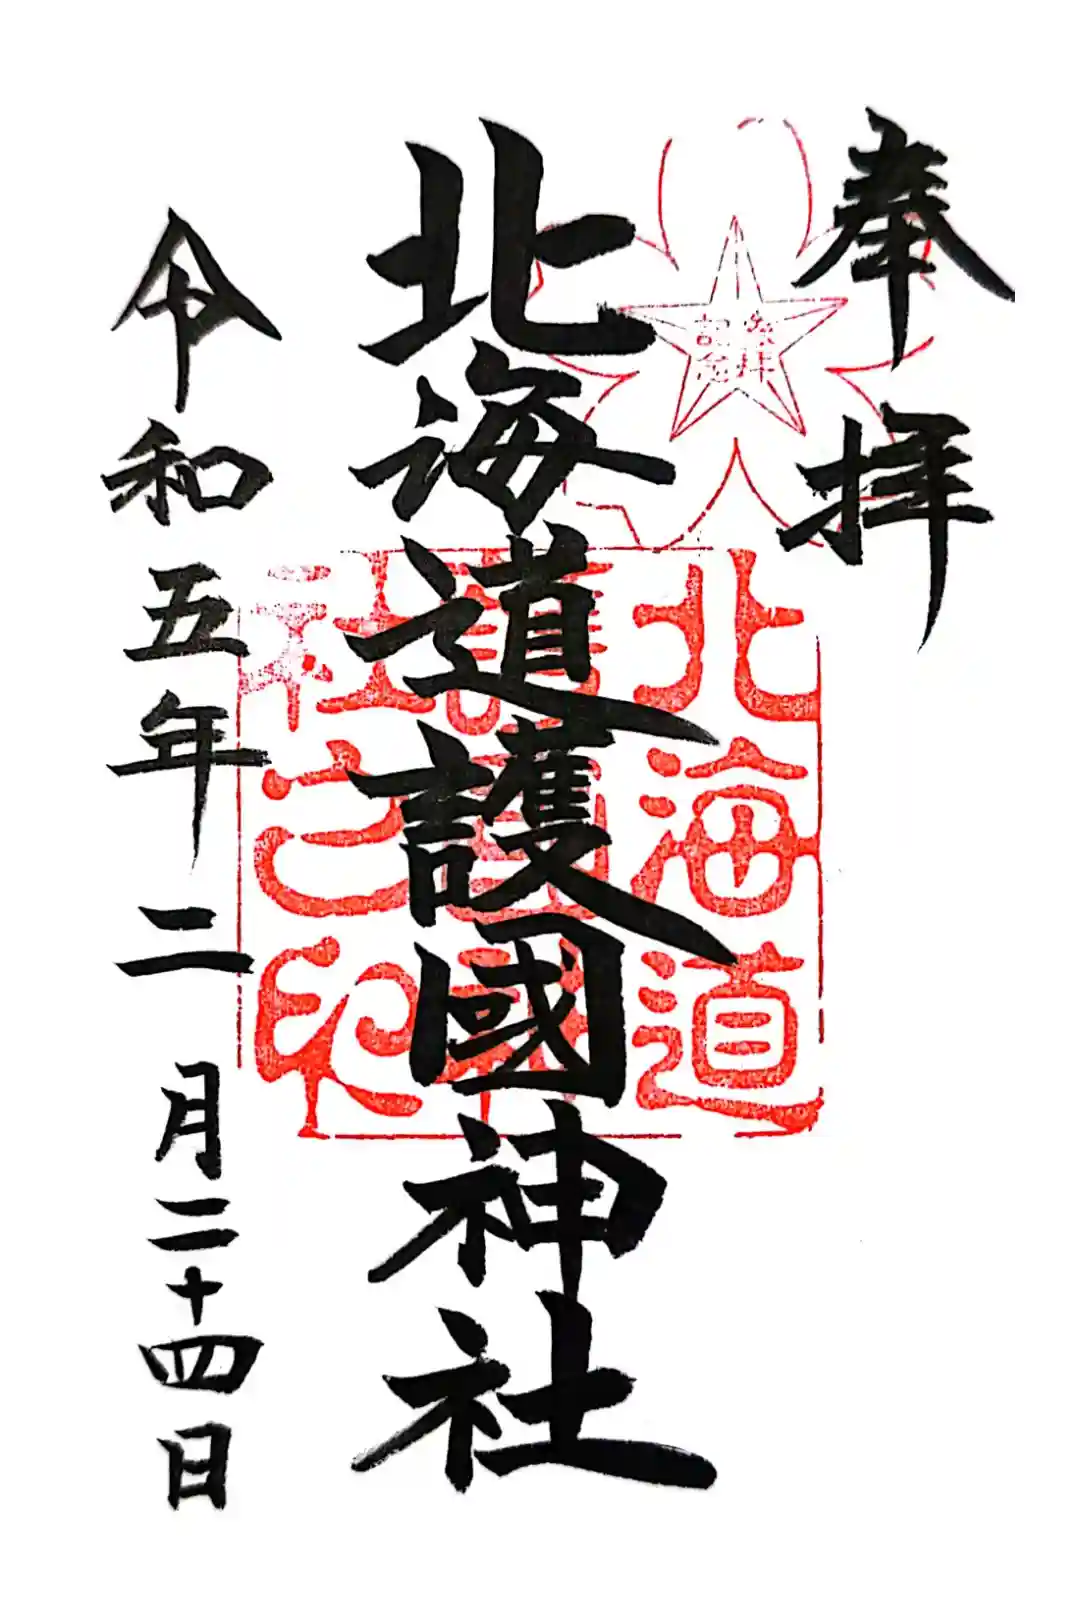 奉拝
参拝
記念
北海道護國神社
北海道
護國神
社之印
令和五年二月二十四日